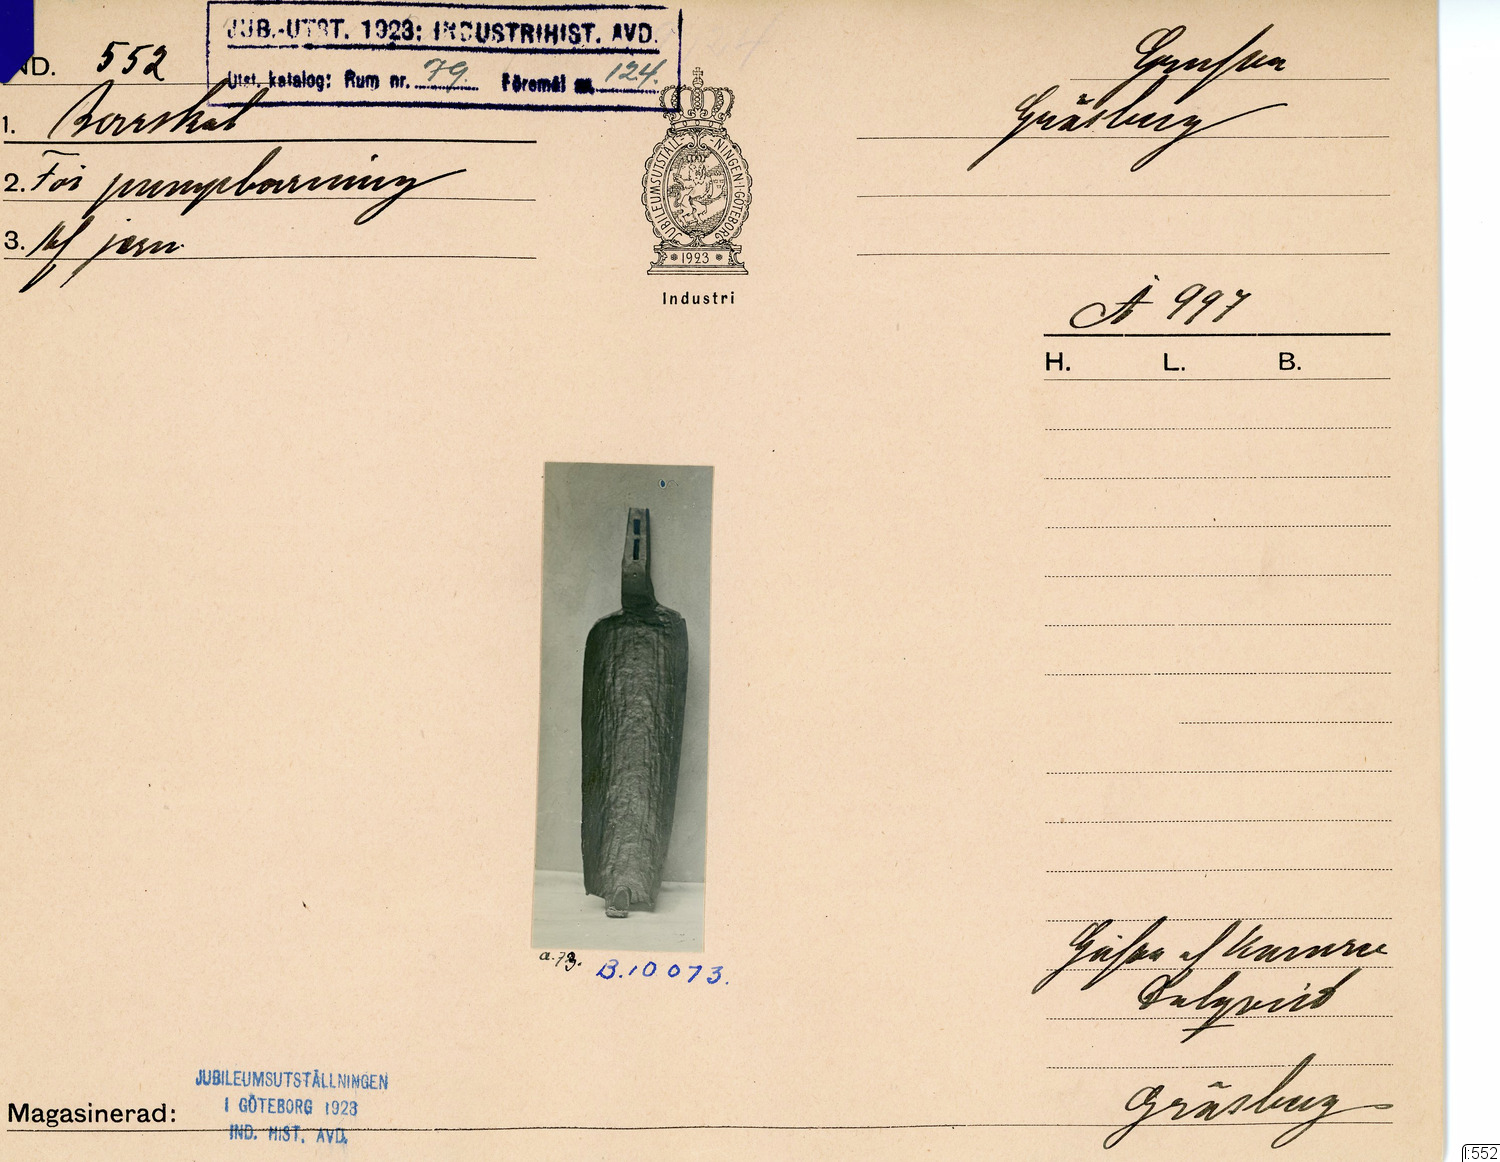 JUB.-UTST. 1923: INDUSTRIHIST. AVD.
Utst. katalog: Rum nr. 79. Föremål nr. 124.
ND. 552
1. Borrskal
2. För pumpborrning
3. Af jern
JUBILEUMSUTSTÄLLNINGEN I GÖTEBORG
1923
Industri
Gräsberg
A 997
H. L. B.
a.73.
B.10073.
af
Dalqvist
Gräsberg
JUBILEUMSUTSTÄLLNINGEN
I GÖTEBORG 1923
IND. HIST. AVD.
Magasinerad:
I:552